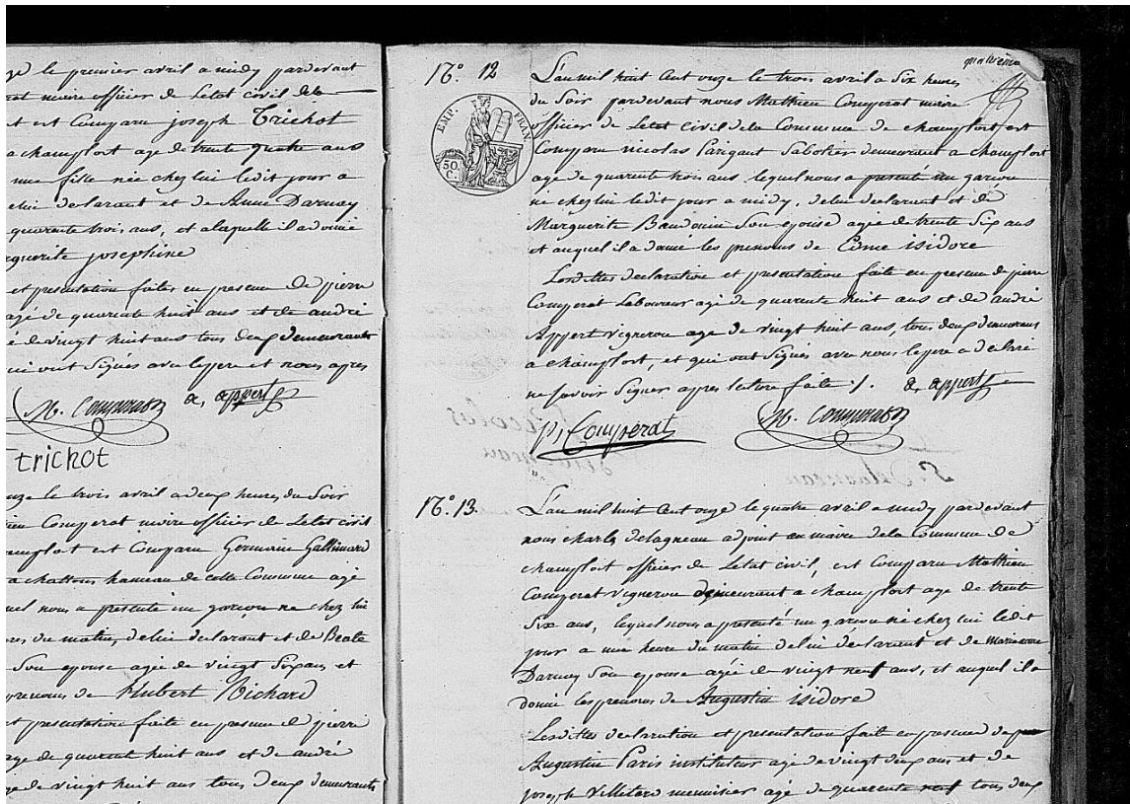 ze le premier avril a midy pardevant
maire officier de Letat civil de la
est Comparu joseph Trichot
a champlost age de trente quatre ans
une fille née chez lui ledit jour a
de lui declarant et de Anne Darnay
quarente trois ans, et a laquelle il a donné
josephine
et presentation faites en presence de pierre
agé de quarente huit ans et de andré
de vingt huit ans tous deux demeurants
qui ont Signés avec le pere et nous apres
M. Comperat a, appert
trichot
onze le trois avril a deux heures du Soir
Comperat maire officier de Letat civil
champlost est Comparu Germain Gallimard
a chattons hameau de cette Commune agé
nous a presenté un garcon ne chez lui
du matin, de lui declarant et de Beate
Son epouse agée de vingt Six ans et
prenoms de Hubert Richard
et presentation faite en presence de pierre
age de quarent huit ans et de andré
de vingt huit ans tous deux demeurants
N° 12
EMP. FRAN
50 C.
L'an mil huit Cent onze le trois avril a Six heures
du Soir pardevant nous Mathieu Comperat maire
officier de Letat civil de la Commune de champlost est
Comparu nicolas Parigaut Sabotier demeurant a champlost
age de quarente trois ans lequel nous a presenté un garcon
ne chez lui ledit jour a midy, de lui declarant et de
Marguerite Baudouin Son epouse agée de trente Six ans
et auquel il a donné les prenoms de Edme isidore
Lesdittes declaration et presentation faite en presence de pierre
Comperat Laboureur agé de quarente huit ans et de andré
Appert vigneron age de vingt huit ans, tous deux demeurans
a champlost, et qui ont Signés avec nous le pere a declaré
ne savoir Signer apres lecture faite ·/. a, appert
p, Comperat M. Comperat
N° 13.
L'an mil huit Cent onze le quatre avril a midy pardevant
nous charles delagneau adjoint au maire de la Commune de
champlost officier de Letat civil, est Comparu Mathieu
Comperat vigneron demeurant a champlost age de trente
Six ans, lequel nous a presenté un garcon né chez lui ledit
jour a une heure du matin de lui declarant et de Marianne
Darnay Son epouse agée de vingt neuf ans, et auquel il a
donné les prenoms de Augustin isidore
Lesdittes declaration et presentation faite en presence de
Augustin Paris instituteur age de vingt deux ans et de
joseph Villetard menuisier agé de quarente neuf tous deux